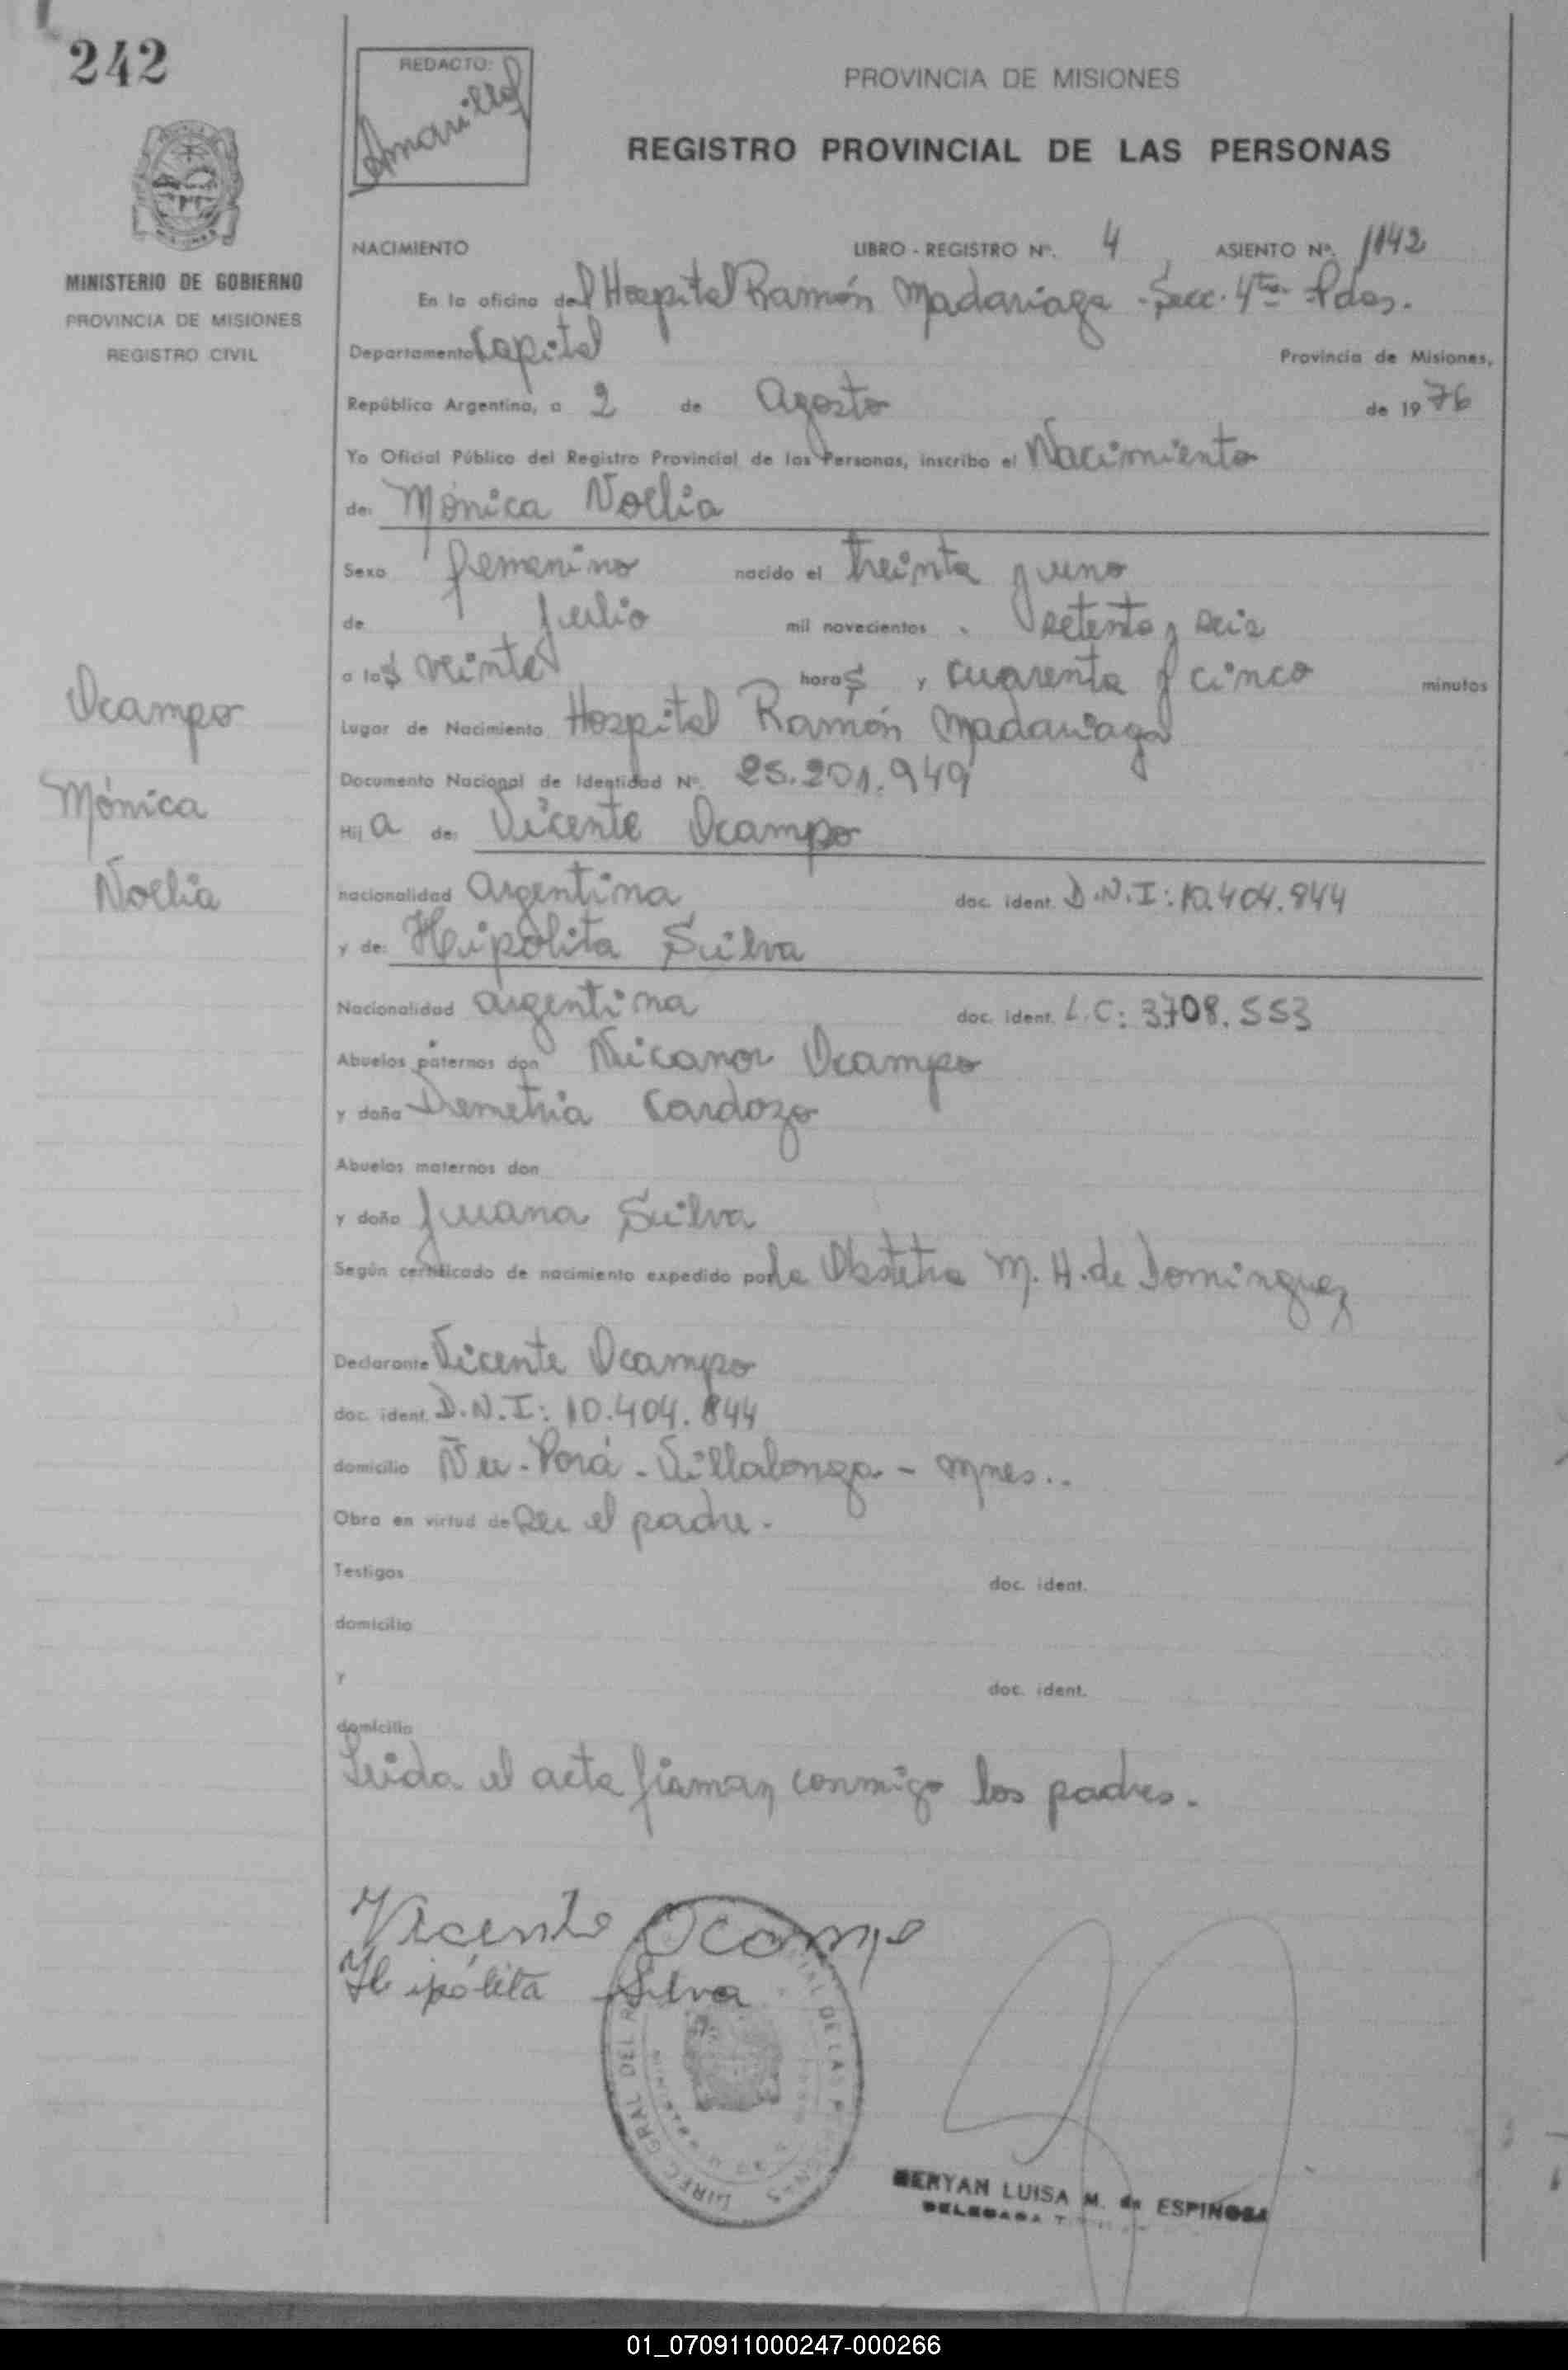 242
REDACTO:
Amarilla
PROVINCIA DE MISIONES
REGISTRO PROVINCIAL DE LAS PERSONAS
MINISTERIO DE GOBIERNO
PROVINCIA DE MISIONES
REGISTRO CIVIL
NACIMIENTO LIBRO - REGISTRO Nº. 4, ASIENTO Nº. 1142
En la oficina del Hospital Ramón Madariaga - Secc. 4ta - Pdas.
Departamento Capital Provincia de Misiones,
República Argentina, a 2 de Agosto de 1976
Yo Oficial Público del Registro Provincial de las Personas, inscribo el Nacimiento
de: Mónica Noelia
Sexo femenino nacido el treinta y uno
de julio mil novecientos setenta y seis
a las veinte horas y cuarenta y cinco minutos
Lugar de Nacimiento Hospital Ramón Madariaga
Documento Nacional de Identidad Nº. 25.201.949
Hija de: Vicente Ocampo
nacionalidad argentina doc. ident. D.N.I: 10.404.844
y de: Hipólita Silva
Nacionalidad argentina doc. ident. L.C: 3.708.553
Abuelos paternos don Nicanor Ocampo
y doña Demetria Cardozo
Abuelos maternos don
y doña Juana Silva
Según certificado de nacimiento expedido por la Obstetra M. H. de Dominguez
Declarante Vicente Ocampo
doc. ident. D.N.I: 10.404.844
domicilio Ñu-Porá - Villalonga - Mnes..
Obra en virtud de ser el padre.
Testigos doc. ident.
domicilio
y doc. ident.
domicilio
Leida el acta firman conmigo los padres.
Ocampo
Mónica
Noelia
Vicente Ocampo
Hipólita Silva
DIREC GRAL DEL DE LAS
LUISA M. de ESPINOSA
DELEGADA
01_070911000247-000266